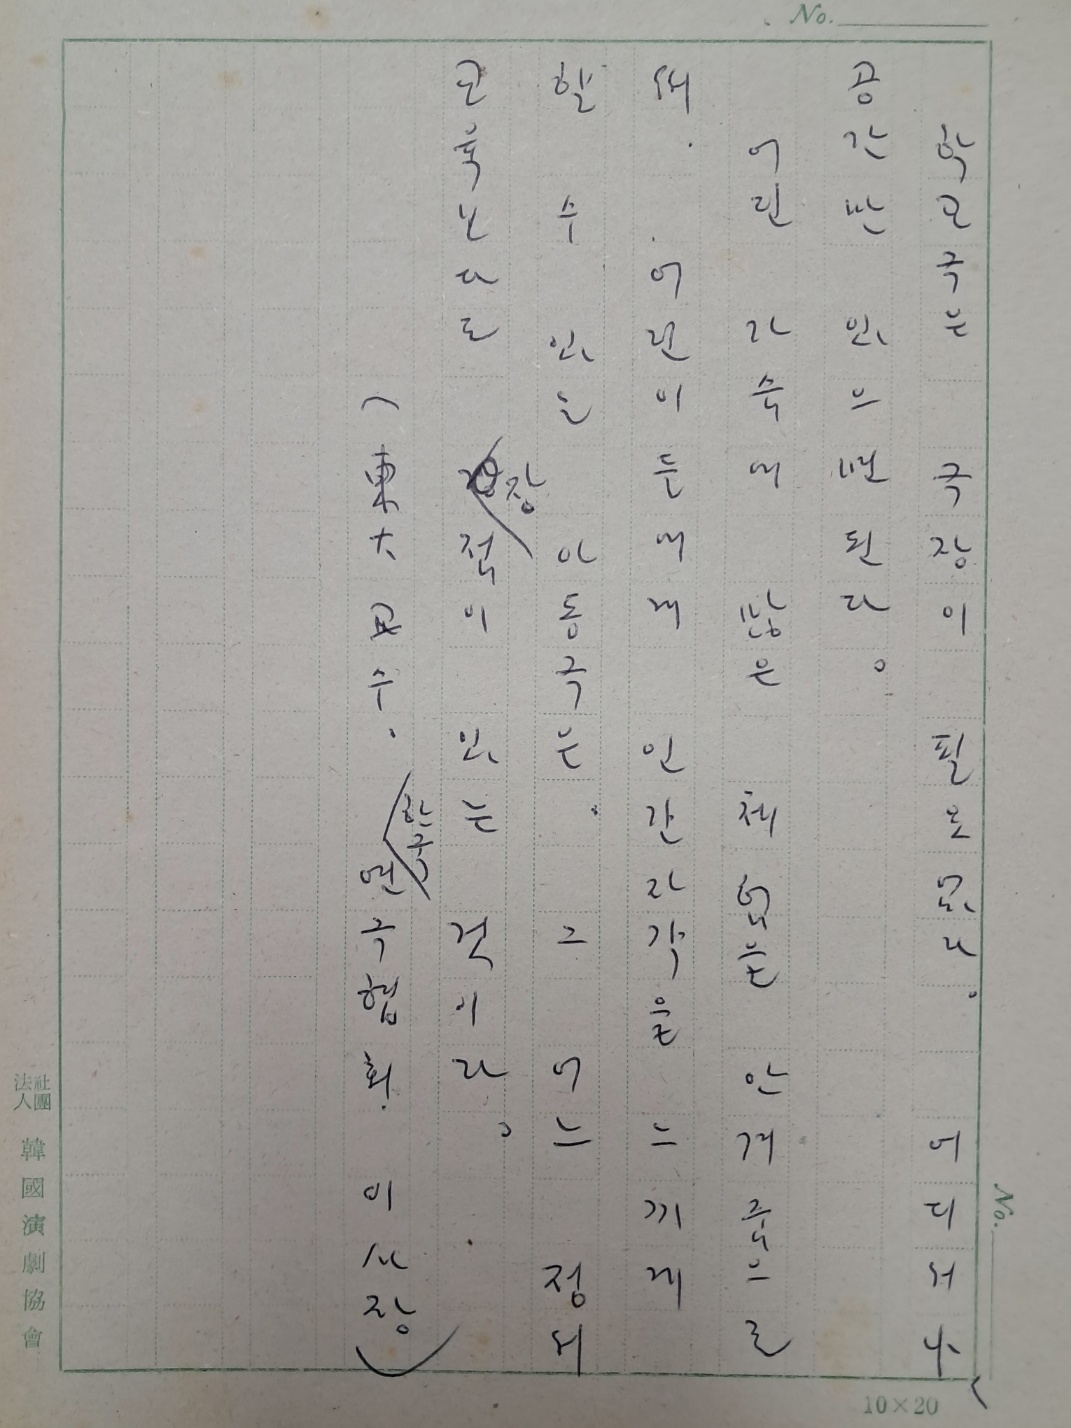 No.
학교극은 극장이 필요없다。 어디서나
공간만 있으면 된다。
어린 가슴에 많은 체험은 안겨줌으로
써. 어린이들에게 느끼게
할 수 있는 아동극은. 그 어느 정서
교육보다도 장점이 있는 것이라。
(東大교수. 한국 연극협회 이사장)
No.
社團法人 韓國演劇協會
10×20